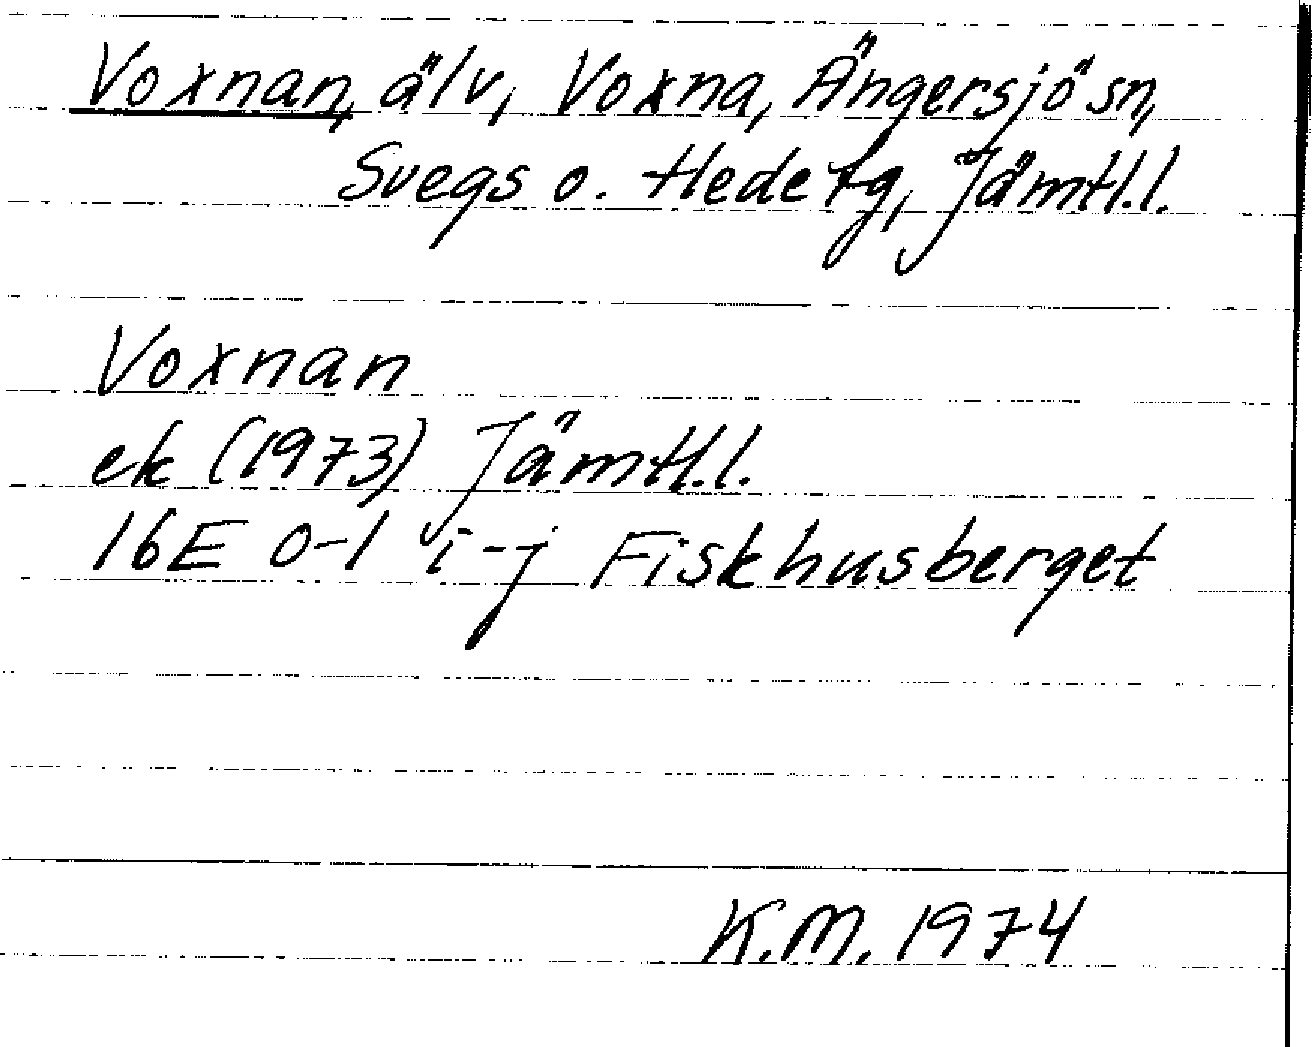 Voxnan, älv, Voxna, Ängersjö sn,
Svegs o. Hede tg, Jämtl.l.
Voxnan
ek (1973) Jämtl.l.
16E 0-1 i-j Fiskhusberget
K.M. 1974